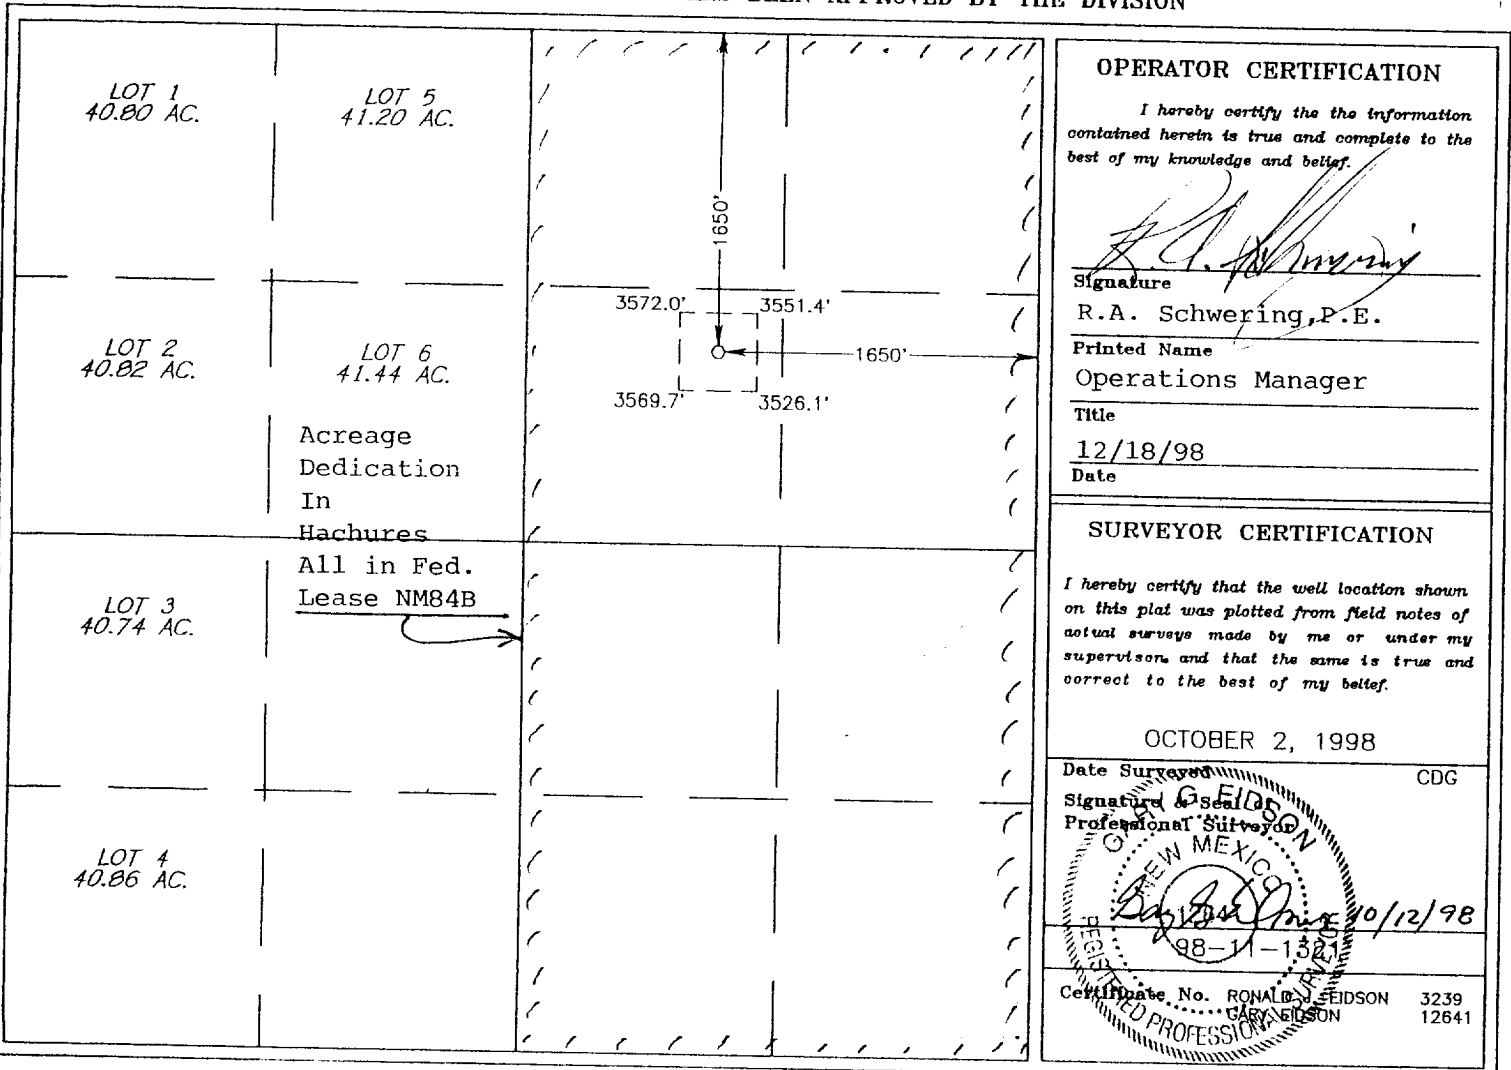 BEEN APPROVED BY THE DIVISION
LOT 1
40.80 AC.
LOT 5
41.20 AC.
1650'
LOT 2
40.82 AC.
LOT 6
41.44 AC.
3572.0'
3551.4'
1650'
3569.7'
3526.1'
Acreage
Dedication
In
Hachures
All in Fed.
Lease NM84B
LOT 3
40.74 AC.
LOT 4
40.86 AC.
OPERATOR CERTIFICATION
I hereby certify the the information
contained herein is true and complete to the
best of my knowledge and belief.
Signature
R.A. Schwering, P.E.
Printed Name
Operations Manager
Title
12/18/98
Date
SURVEYOR CERTIFICATION
I hereby certify that the well location shown
on this plat was plotted from field notes of
actual surveys made by me or under my
supervison, and that the same is true and
correct to the best of my belief.
OCTOBER 2, 1998
Date Surveyed
CDG
Signature & Seal of
Professional Surveyor
GARY G. EIDSON
NEW MEXICO
REGISTERED PROFESSIONAL SURVEYOR
10/12/98
98-11-1321
Certificate No. RONALD J. EIDSON 3239
GARY EIDSON 12641